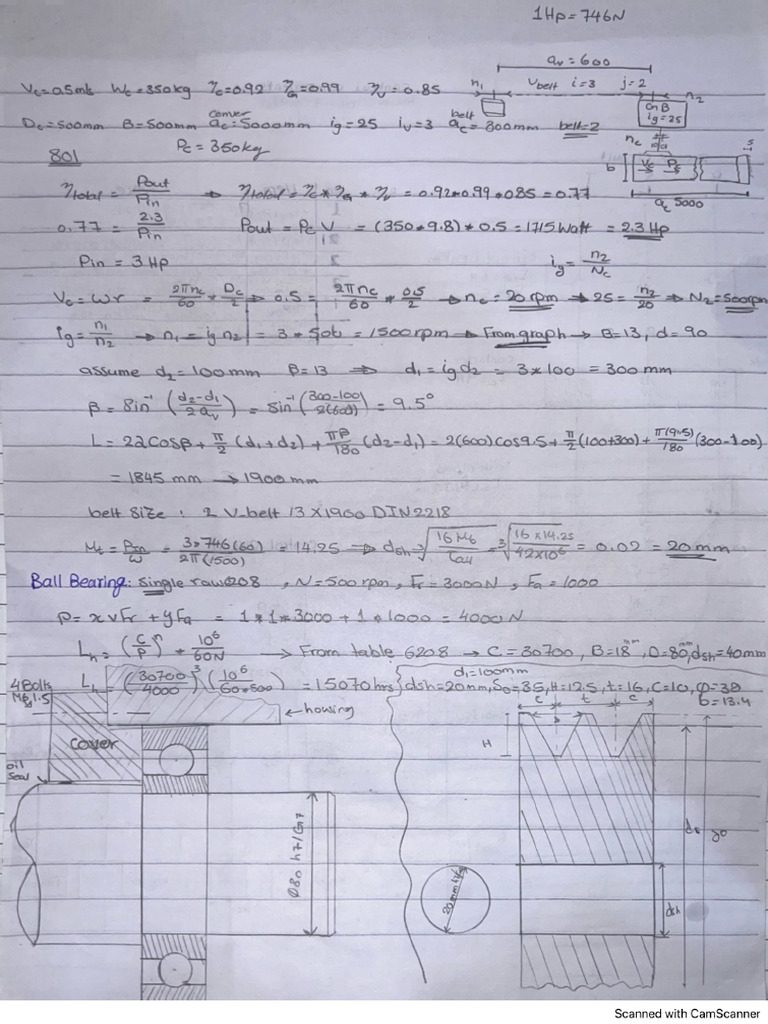 1Hp = 746N
av = 600
Vc=0.5m/s Wc=350kg ηc=0.92 ηG=0.99 ηv=0.85
n1 Vbelt i=3 j=2 n2
GnB
ig=25
Dc=500mm B=500mm ac=5000mm ig=25 iv=3 ac=800mm belt=2
conver belt
Pc=350kg
nc
b Vc Pc 5
ac 5000
801
ηtotal = Pout/Pin → ηtotal = ηc * ηG * ηv = 0.92*0.99*0.85 = 0.77
0.77 = 2.3/Pin Pout = Pc V = (350*9.8)*0.5 = 1715 Watt = 2.3 Hp
Pin = 3 Hp ig = n2/Nc
Vc = ωr = 2πnc/60 * Dc/2 → 0.5 = 2πnc/60 * 0.5/2 → nc = 20 rpm → 25 = n2/20 → N2 = 500rpm
ig = n1/n2 → n1 = ig n2 = 3 * 500 = 1500 rpm → From graph → B=13, d=90
assume d2 = 100mm β=13 ⇒ d1 = ig d2 = 3*100 = 300 mm
β = Sin⁻¹ (d2-d1/2av) = sin⁻¹(300-100/2(600)) = 9.5°
L = 2a Cosβ + π/2 (d1+d2) + πβ/180 (d2-d1) = 2(600)cos9.5 + π/2 (100+300) + π(9.5)/180 (300-100)
= 1845 mm → 1900 mm
belt size : 2 V-belt 13 X1900 DIN2218
Mt = Pin/ω = 3*746(60)/2π(1500) = 14.25 ⇒ dsh = ∛16Mt/τall = ∛16*14.25/42x10⁶ = 0.02 = 20 mm
Ball Bearing: Single raw 6208 , N=500 rpm , Fr = 3000N , Fa = 1000
P = x v Fr + y Fa = 1*1*3000 + 1*1000 = 4000 N
Lh = (C/P)ⁿ * 10⁶/60N → From table 6208 → C = 30700 , B=18mm, D=80mm, dsh=40mm
Lh = (30700/4000)³ (10⁶/60*500) = 15070 hrs
d1=100mm
dsh=20mm, S0=35, H=12.5, t=16, C=10, φ=38
b=13.4
4 Bolts
M6*1.5
howing
cover
oil
seal
Ø80 h7/G7
c t c
H
20mm
dsh
d0